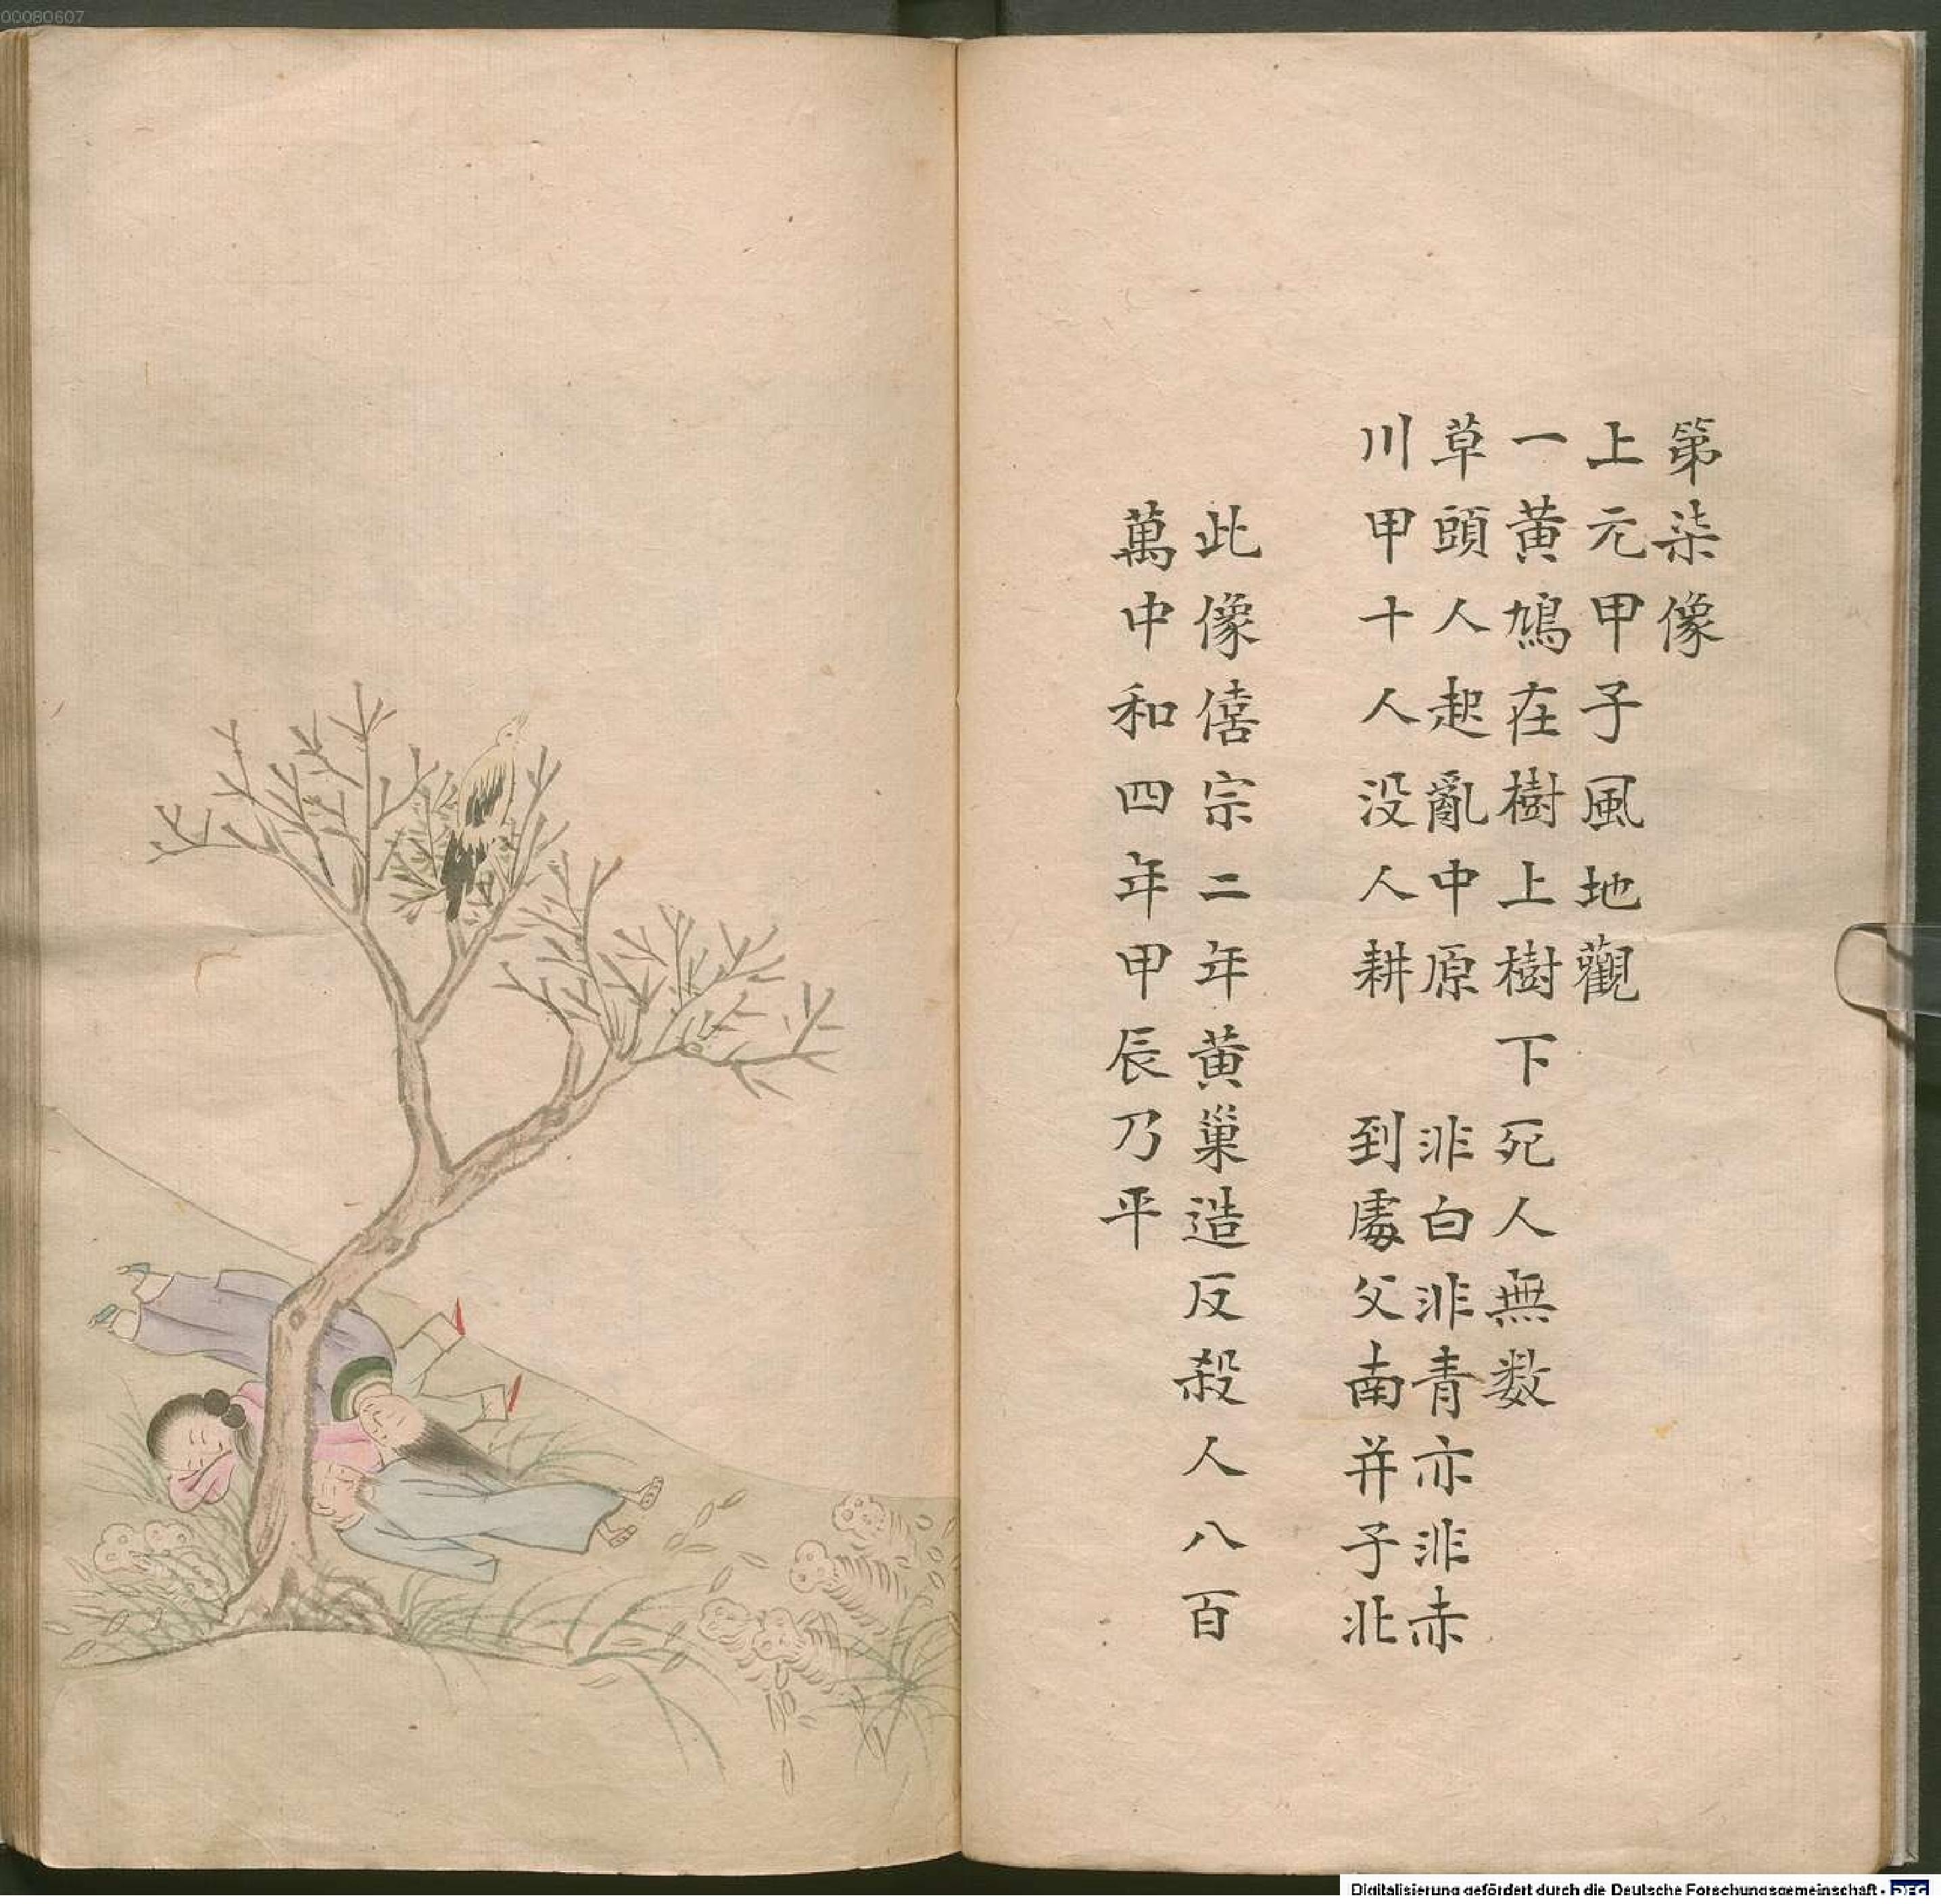 00080607
第柒像
上元甲子風地觀
一黄鳩在樹上樹下死人無数
草頭人起亂中原　非白非青亦非赤
川甲十人没人耕　到處父南并子北
此像僖宗二年黄巢造反殺人八百
萬中和四年甲辰乃平
Digitalisierung gefördert durch die Deutsche Forschungsgemeinschaft - DFG